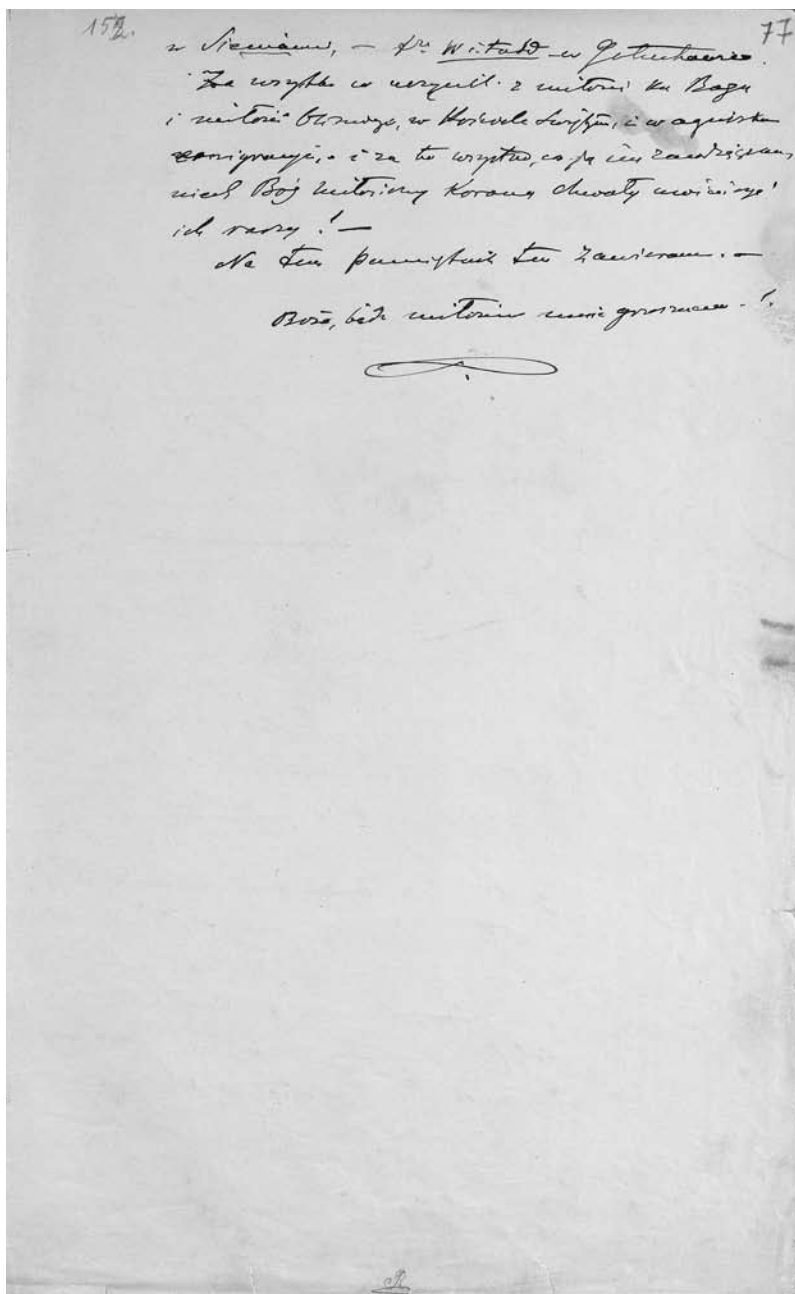 152.
77
w Sieniawie, – X.n Witold w Gołuchowie.
Za wszystko co uczynili z miłości ku Bogu
i miłości bliźniego, w Kościele świętym, i w ognisku
emigracyi, – i za to wszystko, co ja im zawdzięczam,
niech Bóg miłościwy Koroną chwały uwieńczyć
ich raczy! –
Na tem pamiętnik ten zawieram. –
Boże, bądź miłościw mnie grzesznemu –!